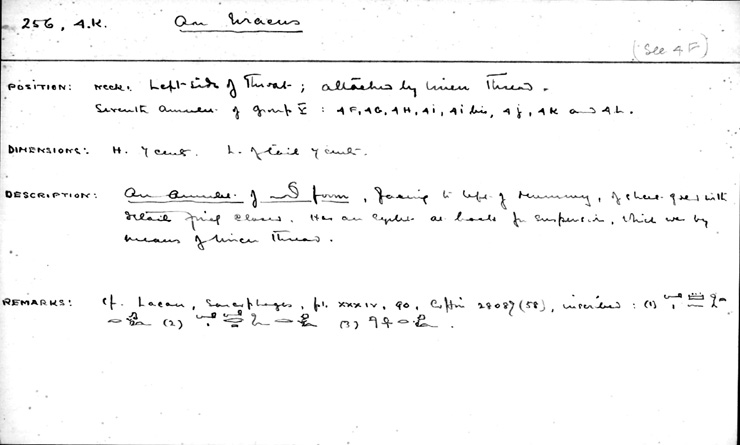 256, 4.K. An Uraeus
(See 4F)
POSITION: Neck. Left-side of Throat; attached by linen Thread.
Seventh Amulet of group V: 4F, 4G, 4H, 4i, 4i bis, 4j, 4K and 4L.
DIMENSIONS: H. 7 cents. L. of tail 7 cents.
DESCRIPTION: An amulet of form, facing to left of mummy, of sheet gold with
detail chased. Has an eyelet at back for suspension, which was by
means of linen Thread.
REMARKS: Cf. Lacau, Sarcophages, pl. XXXIV, 90, Coffin 28089 (58), inscribed: (1)
(2) (3)